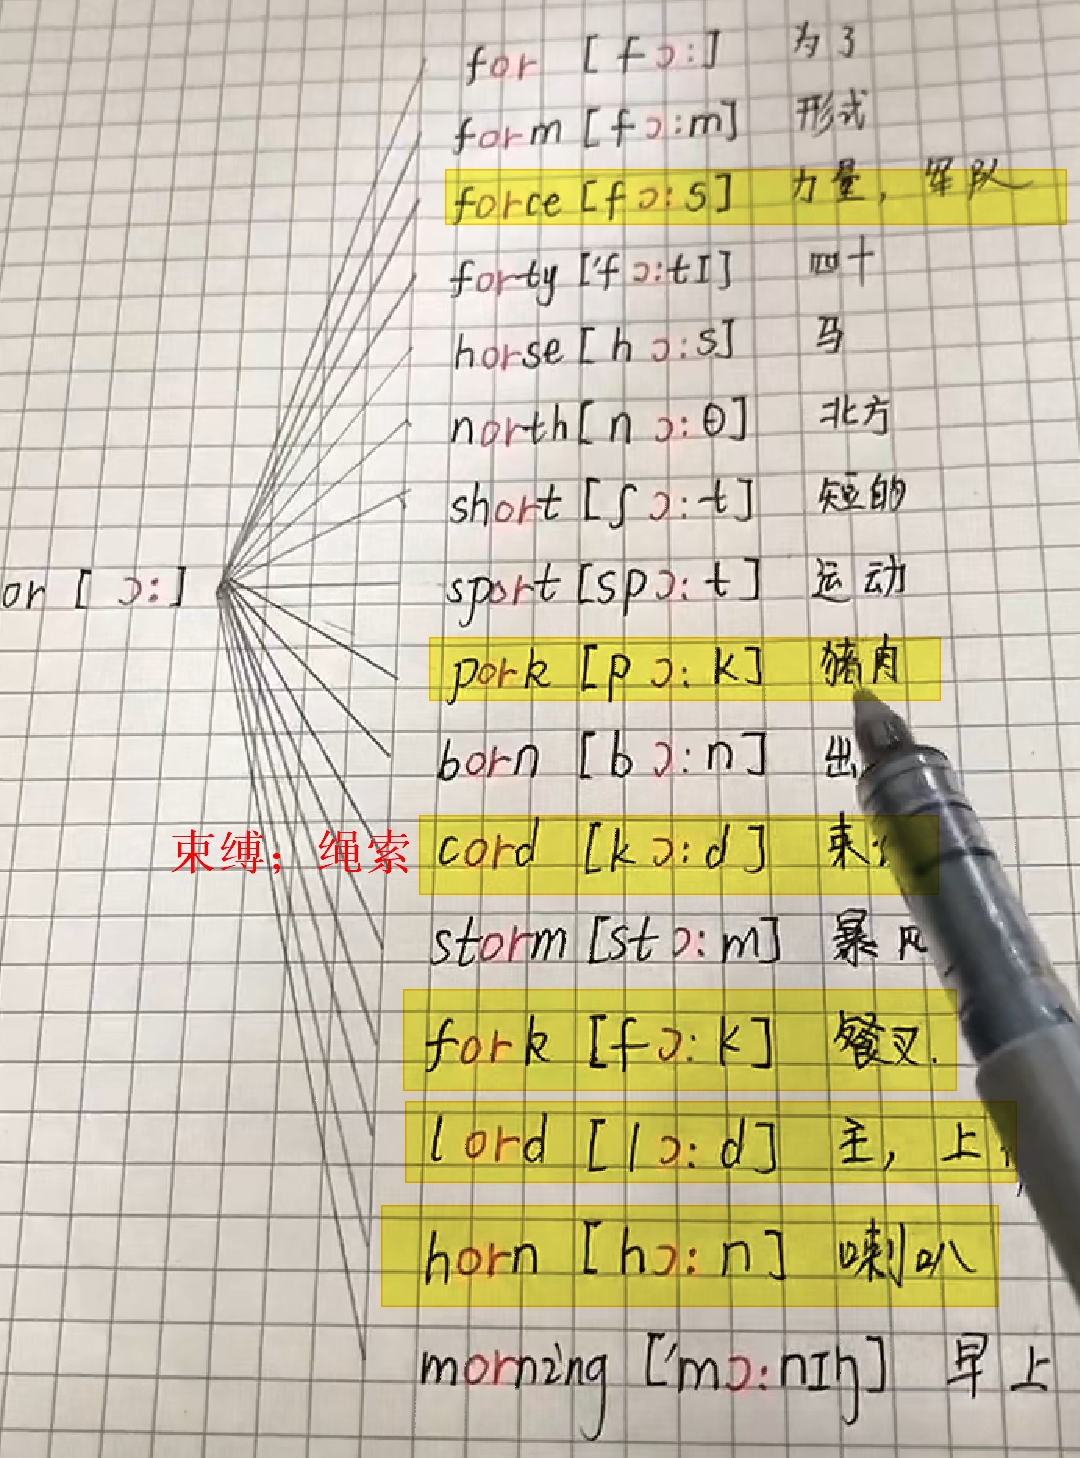 for [fɔ:] 为了
form [fɔ:m] 形式
force [fɔ:s] 力量，军队
forty ['fɔ:tɪ] 四十
horse [hɔ:s] 马
north [nɔ:θ] 北方
short [ʃɔ:t] 短的
sport [spɔ:t] 运动
or [ɔ:]
pork [pɔ:k] 猪肉
born [bɔ:n] 出
束缚；绳索 cord [kɔ:d] 束
storm [stɔ:m] 暴风
fork [fɔ:k] 餐叉.
lord [lɔ:d] 主，上
horn [hɔ:n] 喇叭
morning ['mɔ:nɪŋ] 早上